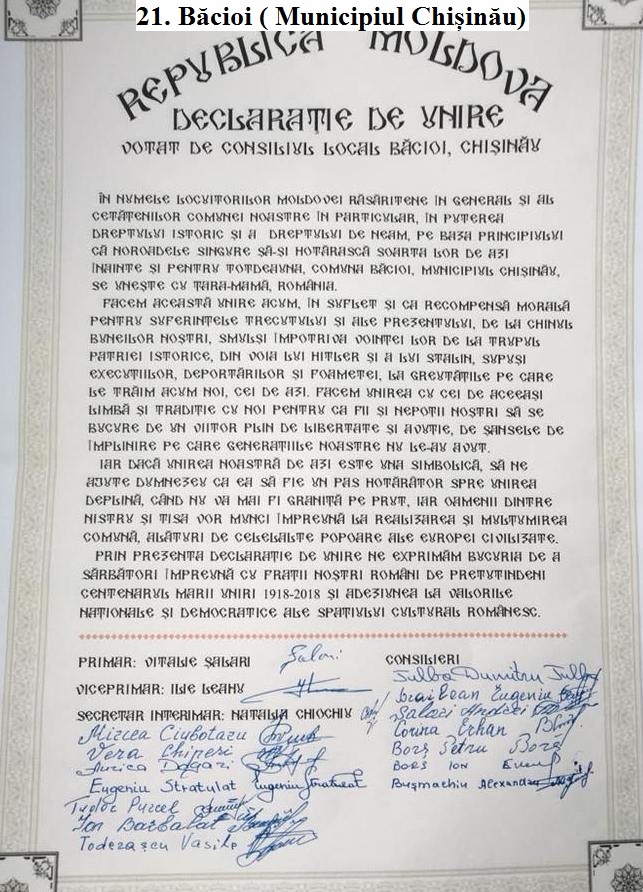 21. Băcioi ( Municipiul Chișinău)
REPUBLICA MOLDOVA
DECLARAȚIE DE UNIRE
VOTAT DE CONSILIUL LOCAL BĂCIOI, CHIȘINĂU
ÎN NUMELE LOCUITORILOR MOLDOVEI RĂSĂRITENE ÎN GENERAL ȘI AL
CETĂȚENILOR COMUNEI NOASTRE ÎN PARTICULAR, ÎN PUTEREA
DREPTULUI ISTORIC ȘI A DREPTULUI DE NEAM, PE BAZA PRINCIPIULUI
CĂ NOROADELE SINGURE SĂ-ȘI HOTĂRASCĂ SOARTA LOR DE AZI
ÎNAINTE ȘI PENTRU TOTDEAUNA, COMUNA BĂCIOI, MUNICIPIUL CHIȘINĂU,
SE UNEȘTE CU ȚARA-MAMĂ, ROMÂNIA.
FACEM ACEASTĂ UNIRE ACUM, ÎN SUFLET ȘI CA RECOMPENSĂ MORALĂ
PENTRU SUFERINȚELE TRECUTULUI ȘI ALE PREZENTULUI, DE LA CHINUL
BUNEILOR NOȘTRI, SMULȘI ÎMPOTRIVA VOINȚEI LOR DE LA TRUPUL
PATRIEI ISTORICE, DIN VOIA LUI HITLER ȘI A LUI STALIN, SUPUȘI
EXECUȚIILOR, DEPORTĂRILOR ȘI FOAMETEI, LA GREUTĂȚILE PE CARE
LE TRĂIM ACUM NOI, CEI DE AZI. FACEM UNIREA CU CEI DE ACEEAȘI
LIMBĂ ȘI TRADIȚIE CU NOI PENTRU CA FII ȘI NEPOȚII NOȘTRI SĂ SE
BUCURE DE UN VIITOR PLIN DE LIBERTATE ȘI AVUȚIE, DE ȘANSELE DE
ÎMPLINIRE PE CARE GENERAȚIILE NOASTRE NU LE-AU AVUT.
IAR DACĂ UNIREA NOASTRĂ DE AZI ESTE UNA SIMBOLICĂ, SĂ NE
AJUTE DUMNEZEU CA EA SĂ FIE UN PAS HOTĂRÂTOR SPRE UNIREA
DEPLINĂ, CÂND NU VA MAI FI GRANIȚĂ PE PRUT, IAR OAMENII DINTRE
NISTRU ȘI TISA VOR MUNCI ÎMPREUNĂ LA REALIZAREA ȘI MULȚUMIREA
COMUNĂ, ALĂTURI DE CELELALTE POPOARE ALE EUROPEI CIVILIZATE.
PRIN PREZENTA DECLARAȚIE DE UNIRE NE EXPRIMĂM BUCURIA DE A
SĂRBĂTORI ÎMPREUNĂ CU FRAȚII NOȘTRI ROMÂNI DE PRETUTINDENI
CENTENARUL MARII UNIRI 1918-2018 ȘI ADEZIUNEA LA VALORILE
NAȚIONALE ȘI DEMOCRATICE ALE SPAȚIULUI CULTURAL ROMÂNESC.
PRIMAR: VITALIE ȘALARI
VICEPRIMAR: ILIE LEAHU
SECRETAR INTERIMAR: NATALIA CHIOCHIU
Mircea Ciubotaru
Vera Chiperi
Eugeniu Stratulat Eugeniu Stratulat
Tudor Purcel
Ion Barbalat
Toderașcu Vasile
CONSILIERI
Julba Dumitru Julba
Eugeniu
Salari Andrei
Corina Erhan
Borș Petru Borș
BORȘ ION
Bușmachiu Alexandru